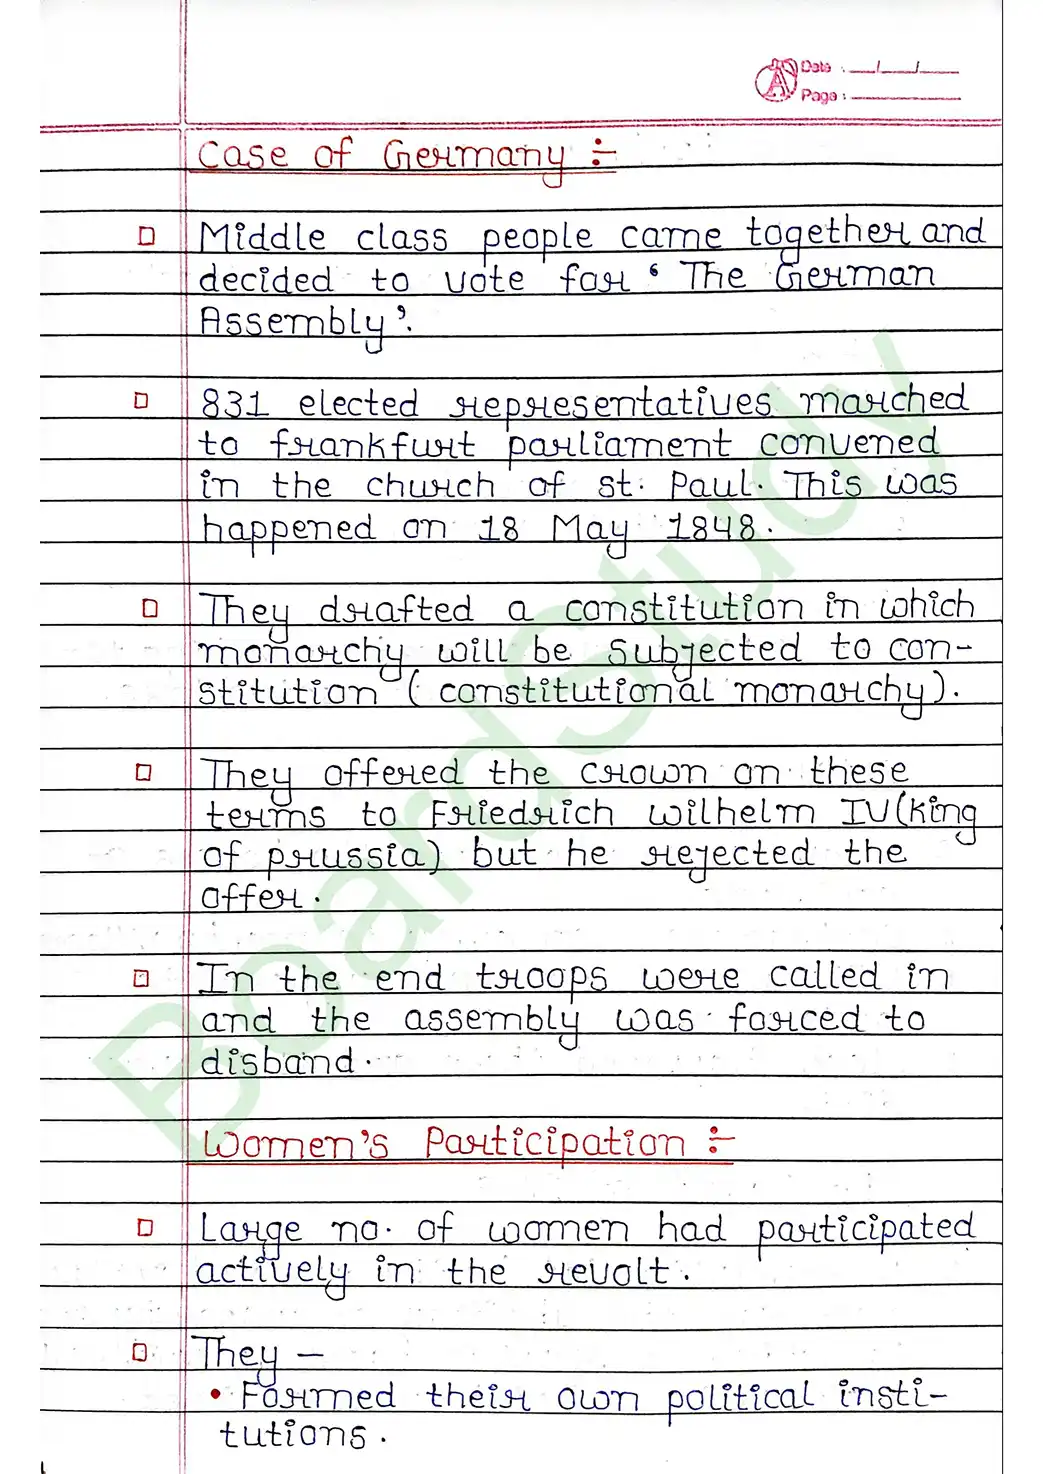 Date : __/__/__
Page :
Case of Germany :-
Middle class people came together and
decided to vote for ‘ The German
Assembly’.
831 elected representatives marched
to frankfurt parliament convened
in the church of st. Paul. This was
happened on 18 May 1848.
They drafted a constitution in which
monarchy will be subjected to con-
stitution ( constitutional monarchy).
They offered the crown on these
terms to Friedrich wilhelm IV(King
of prussia) but he rejected the
offer.
In the end troops were called in
and the assembly was forced to
disband.
Women's Participation :-
Large no. of women had participated
actively in the revolt.
They –
• Formed their own political insti-
tutions.
BoardStudy